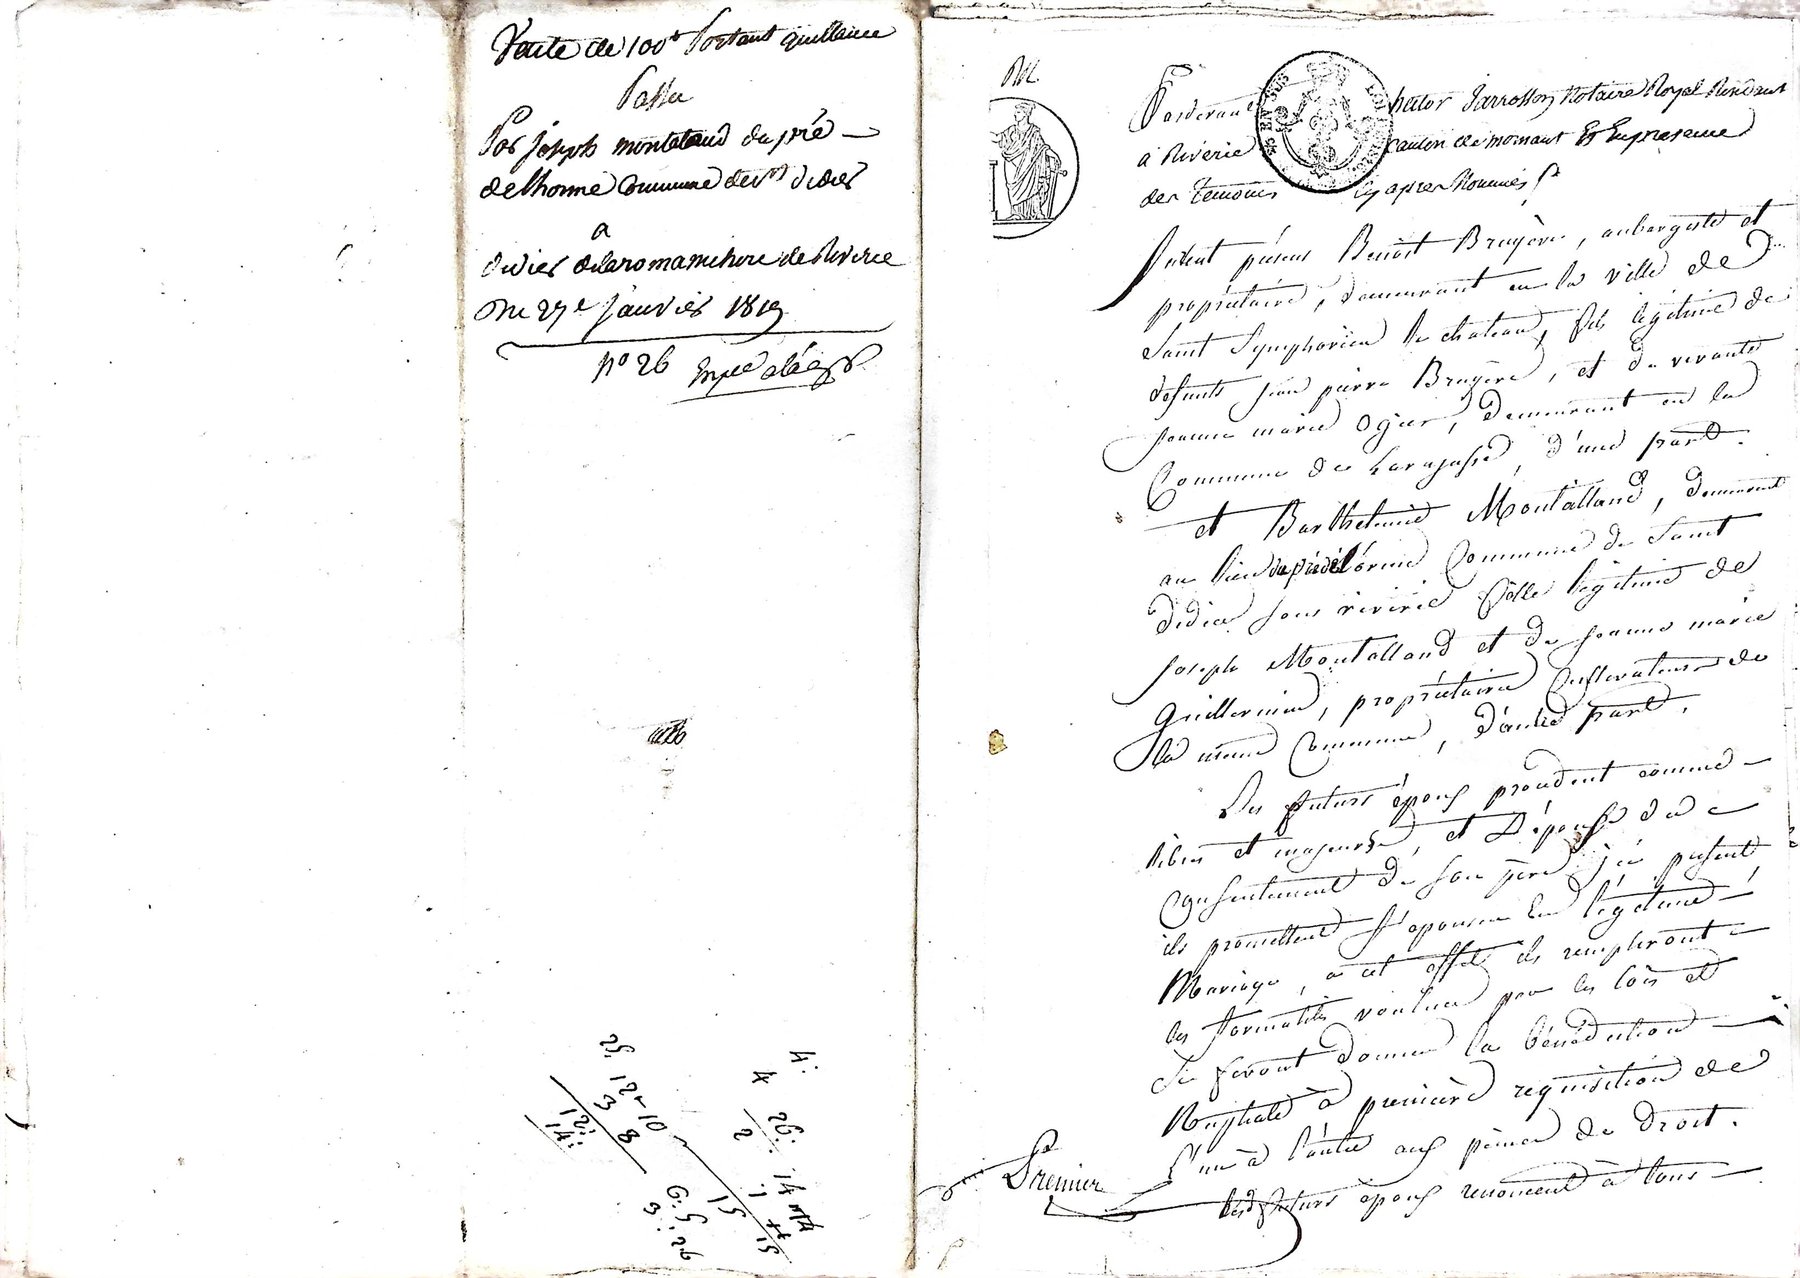 Vente de 100# Portant quittance
Passée
Par joseph montaland du pré
de lhorme Commune de st didier
a
didier delaromanchere de Riverie
Du 27e Janvier 1819
No 26 Expée
25. 12 10
3 8
12:
14:
4:
4 26: 14
2 1
15 15
G: 5: 26
3
EN SUS
Pardevant hector Jarrosson Notaire Royal Residant
à Riverie canton de mornant Et En presence
des temoins cy apres Nommés
furent présens Benoit Bruyère, aubergiste et
propriétaire, demeurant en la ville de
Saint Symphorien le chateau, fils légitime de
défunts jean pierre Bruyère, et de vivante
jeanne marie Ogier, demeurant en la
Commune de Larajasse, d'une part.
et Barthelmie Montalland, demeurant
au lieu du pré de l'orme Commune de Saint
Didier sous riverie fille légitime de
joseph Montalland et de jeanne marie
Guillermin, propriétaires Cultivateurs de
la même Commune, d'autre part.
Les futurs époux procédent comme
libres et majeurs, et l'épouse du
Consentement de son père ici présent
ils promettent s'épouser En légitime
Mariage, a cet effet ils rempliront
les formalités voulues par les lois et
Se feront donner la bénédiction
Nuptiale à première requisition de
l'un à l'autre aux peines de droit.
Premier
lesd futurs époux renoncent à tous